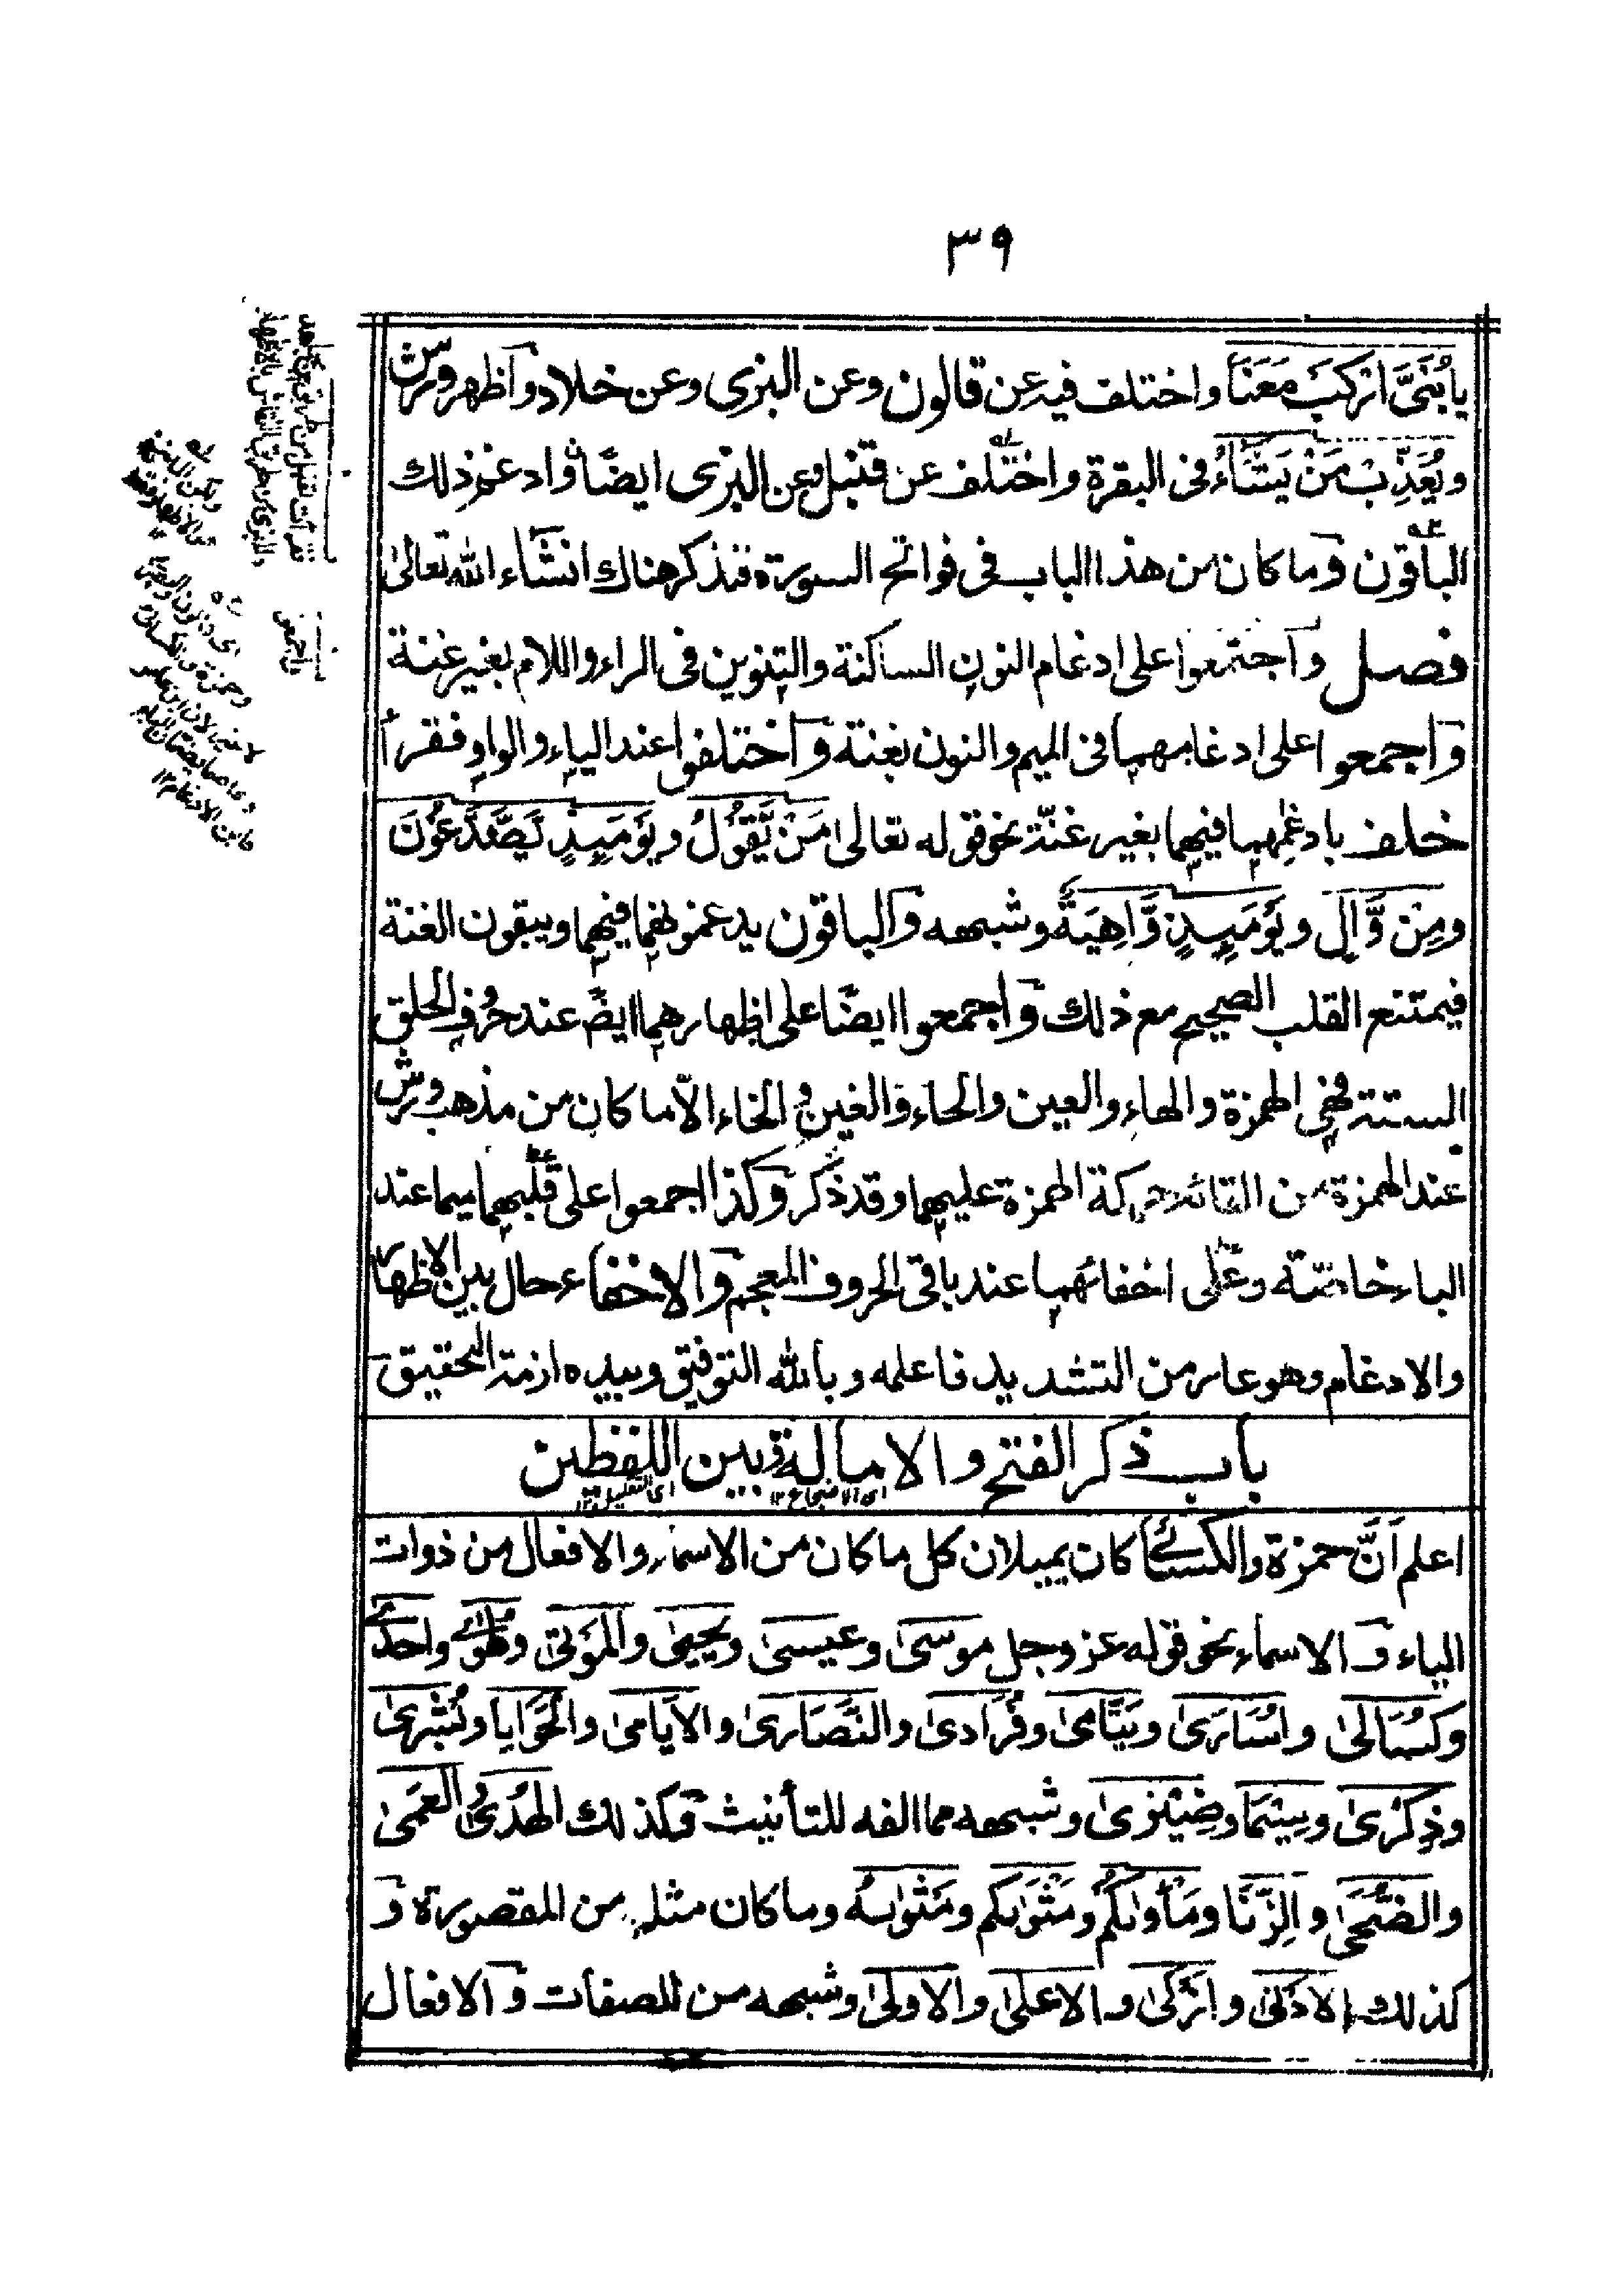 ٣٩
يا بُنَيَّ ارْكَبْ مَعَنَا واختلف فيه عن قالون وعن البزي وعن خلاد و اظهر ورش
ويُعَذِّبْ مَنْ يَشَاءُ في البقرة واختلف عن قنبل وعن البزي ايضًا و ادغم ذلك
الباقون وما كان من هذا الباب في فواتح السورة فنذكر هناك انشاء الله تعالىٰ
فصل واجتمعوا على ادغام النون الساكنة والتنوين في الراء واللام بغير غنة
واجمعوا على ادغامهما في الميم والنون بغنة واختلفوا عند الياء والواو فقرأ
خلف بادغمهما فيهما بغير غنّة نحو قوله تعالىٰ مَنْ يَّقُوْلُ ويَوْمَىِٕذٍ يَّصَّدَّعُوْنَ
ومِنْ وَّالٍ ويَوْمَىِٕذٍ وَّاهِيَةٌ وشبهه والباقون يدغمونهما فيهما ويبقون الغنة
فيمتنع القلب الصحيح مع ذلك واجمعوا ايضًا على اظهارهما ايضً عند حُروف الحلق
الستة فهي الهمزة والهاء والعين والحاء والغين والخاء الّا ما كان من مذهب ورش
عند الهمزة من القائه حركة الهمزة عليهما وقد ذكر وكذا اجمعوا على قلبهما ميما عند
الباء خاصّة وعلى اخفائهما عند باقي الحروف المعجم والاخفاء حال بين الاظهار
والادغام وهو عار من التشديد فاعلمه وبالله التوفيق وبيده ازمة التحقيق
باب ذكر الفتح والامالة وبين اللفظين
اى الاضجاع ١٢ اى التقليل ١٢
اعلم اَنَّ حمزة والكسائي كان يميلان كل ما كان من الاسماء والافعال من ذوات
الياء و الاسماء نحو قوله عز وجل موسىٰ وعيسىٰ ويحيىٰ والمَوْتىٰ وطُوبىٰ واحدىٰ
وكُسَالىٰ واُسَارَىٰ ويَتَامىٰ وفُرَادىٰ والنَّصَارىٰ والاَيَامىٰ والحَوَايا وبُشْرىٰ
وذِكْرىٰ وسِيْمَا وضِيْزىٰ وشبهه مما الفه للتأنيث وكذلك الهُدىٰ والعَمىٰ
والضُّحَىٰ والِزّنَا ومَأْوٰىكُمْ ومَثْوٰىكم ومَثْوٰىهُ وما كان مثله من المقصورة و
كذلك الاَدْنىٰ و اَزْكىٰ و الاعلىٰ والاولىٰ وشبهه من للصفات و الافعال